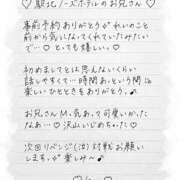 ♡駅北ノーズホテルのお兄さん♡
事前予約ありがとう♂れいのこと
前から気になってくれていたみたい
で♡とっても嬉しい。♡
初めましてとは思えないくらい
話しやすくて…時間あっという間に
楽しいひとときをありがとう。♪
お兄さんM.気あって可愛いかった
なあ…♡沢山いじめちゃった♡
次回リベンジ(注)対戦お願い
しますっ。が楽しみ〜♪